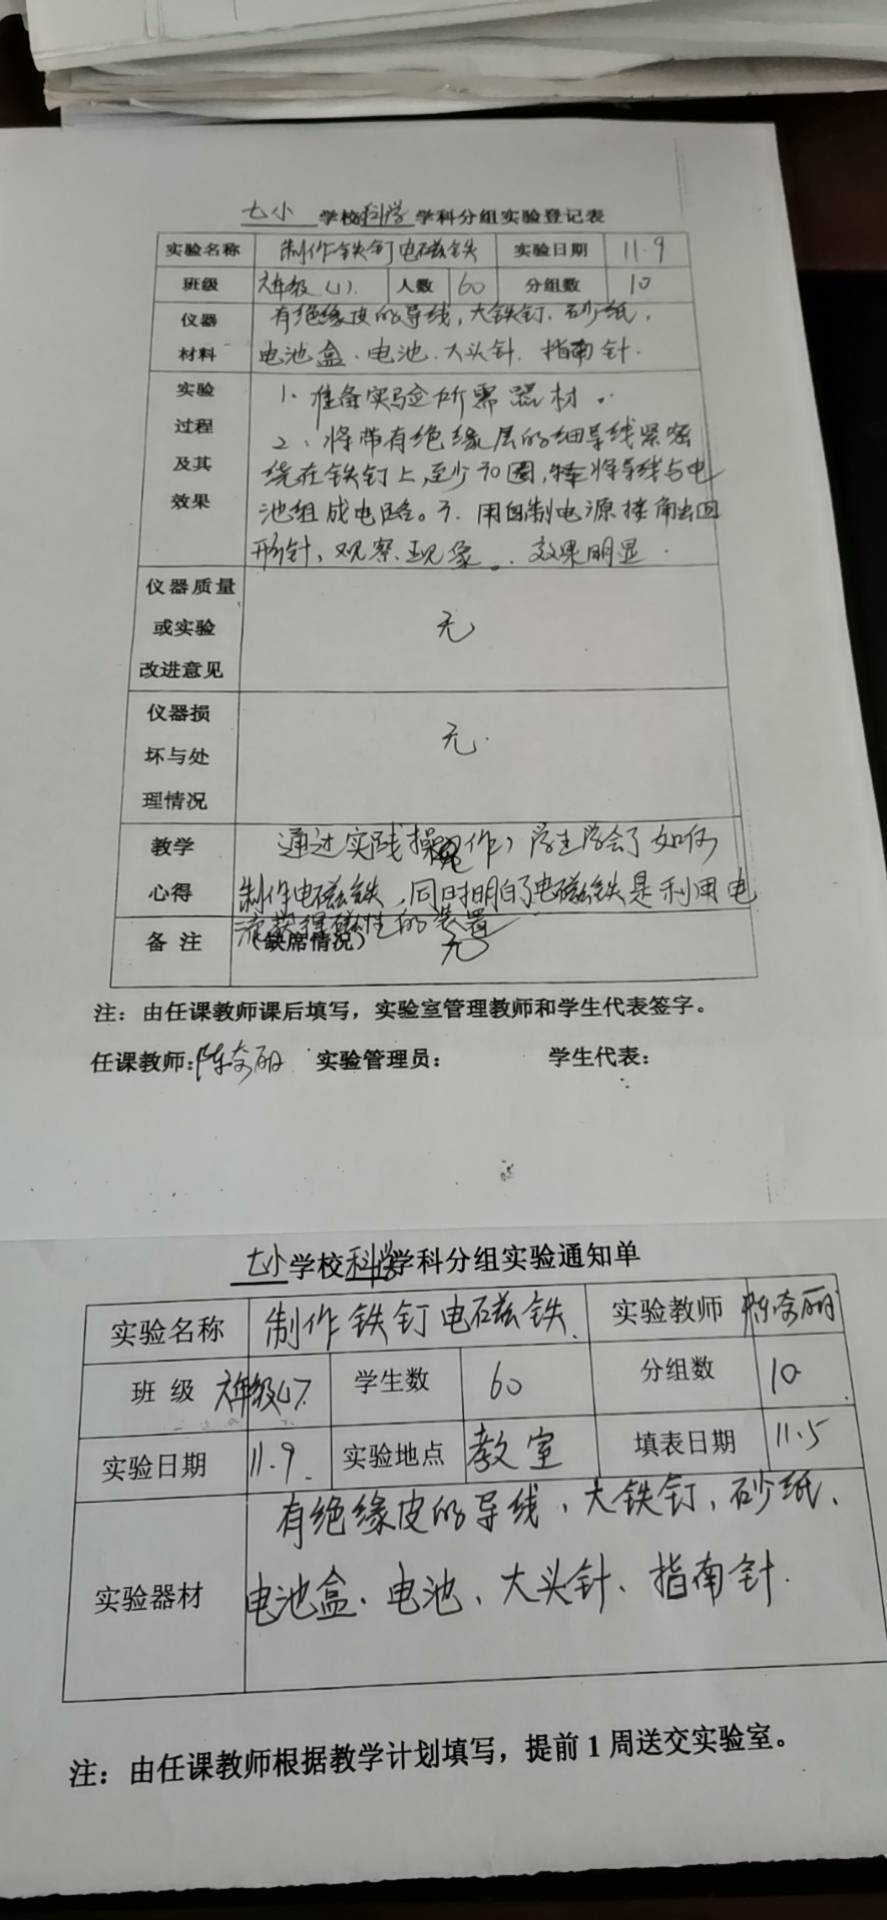 七小 学校科学学科分组实验登记表
实验名称 制作铁钉电磁铁 实验日期 11.9
班级 六年级(1). 人数 60 分组数 10
仪器材料 有绝缘皮的导线,大铁钉、砂纸,
电池盒、电池、大头针、指南针.
实验过程及其效果 1、准备实验所需器材。
2、将带有绝缘层的细导线紧密
绕在铁钉上,至少30圈,将导线与电
池组成电路。3.用自制电源接触回
形针,观察现象。.效果明显.
仪器质量或实验改进意见 无
仪器损坏与处理情况 无.
教学心得 通过实践操作,学生学会了如何
制作电磁铁,同时明白了电磁铁是利用电
流获得磁性的装置
备注 (缺席情况) 无
注:由任课教师课后填写,实验室管理教师和学生代表签字。
任课教师:陈奇丽 实验管理员: 学生代表:
七小学校科学学科分组实验通知单
实验名称 制作铁钉电磁铁. 实验教师 陈奇丽
班级 六年级(1). 学生数 60 分组数 10
实验日期 11.9. 实验地点 教室 填表日期 11.5
实验器材 有绝缘皮的导线、大铁钉、砂纸、
电池盒、电池、大头针、指南针.
注:由任课教师根据教学计划填写,提前1周送交实验室。